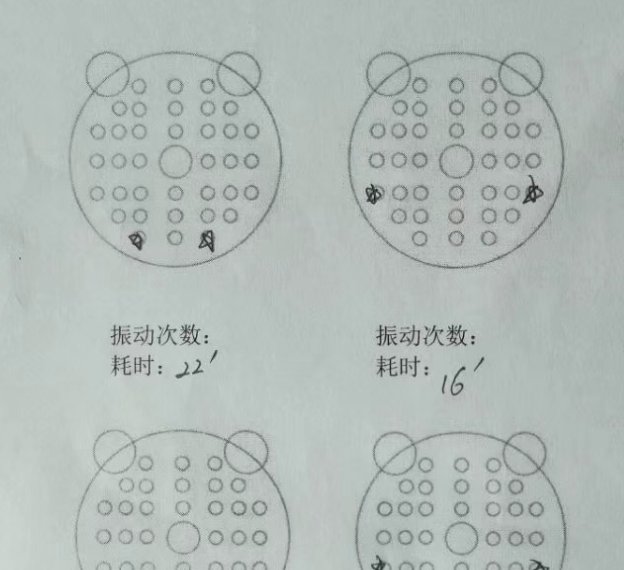 振动次数:
耗时: 22′
振动次数:
耗时: 16′